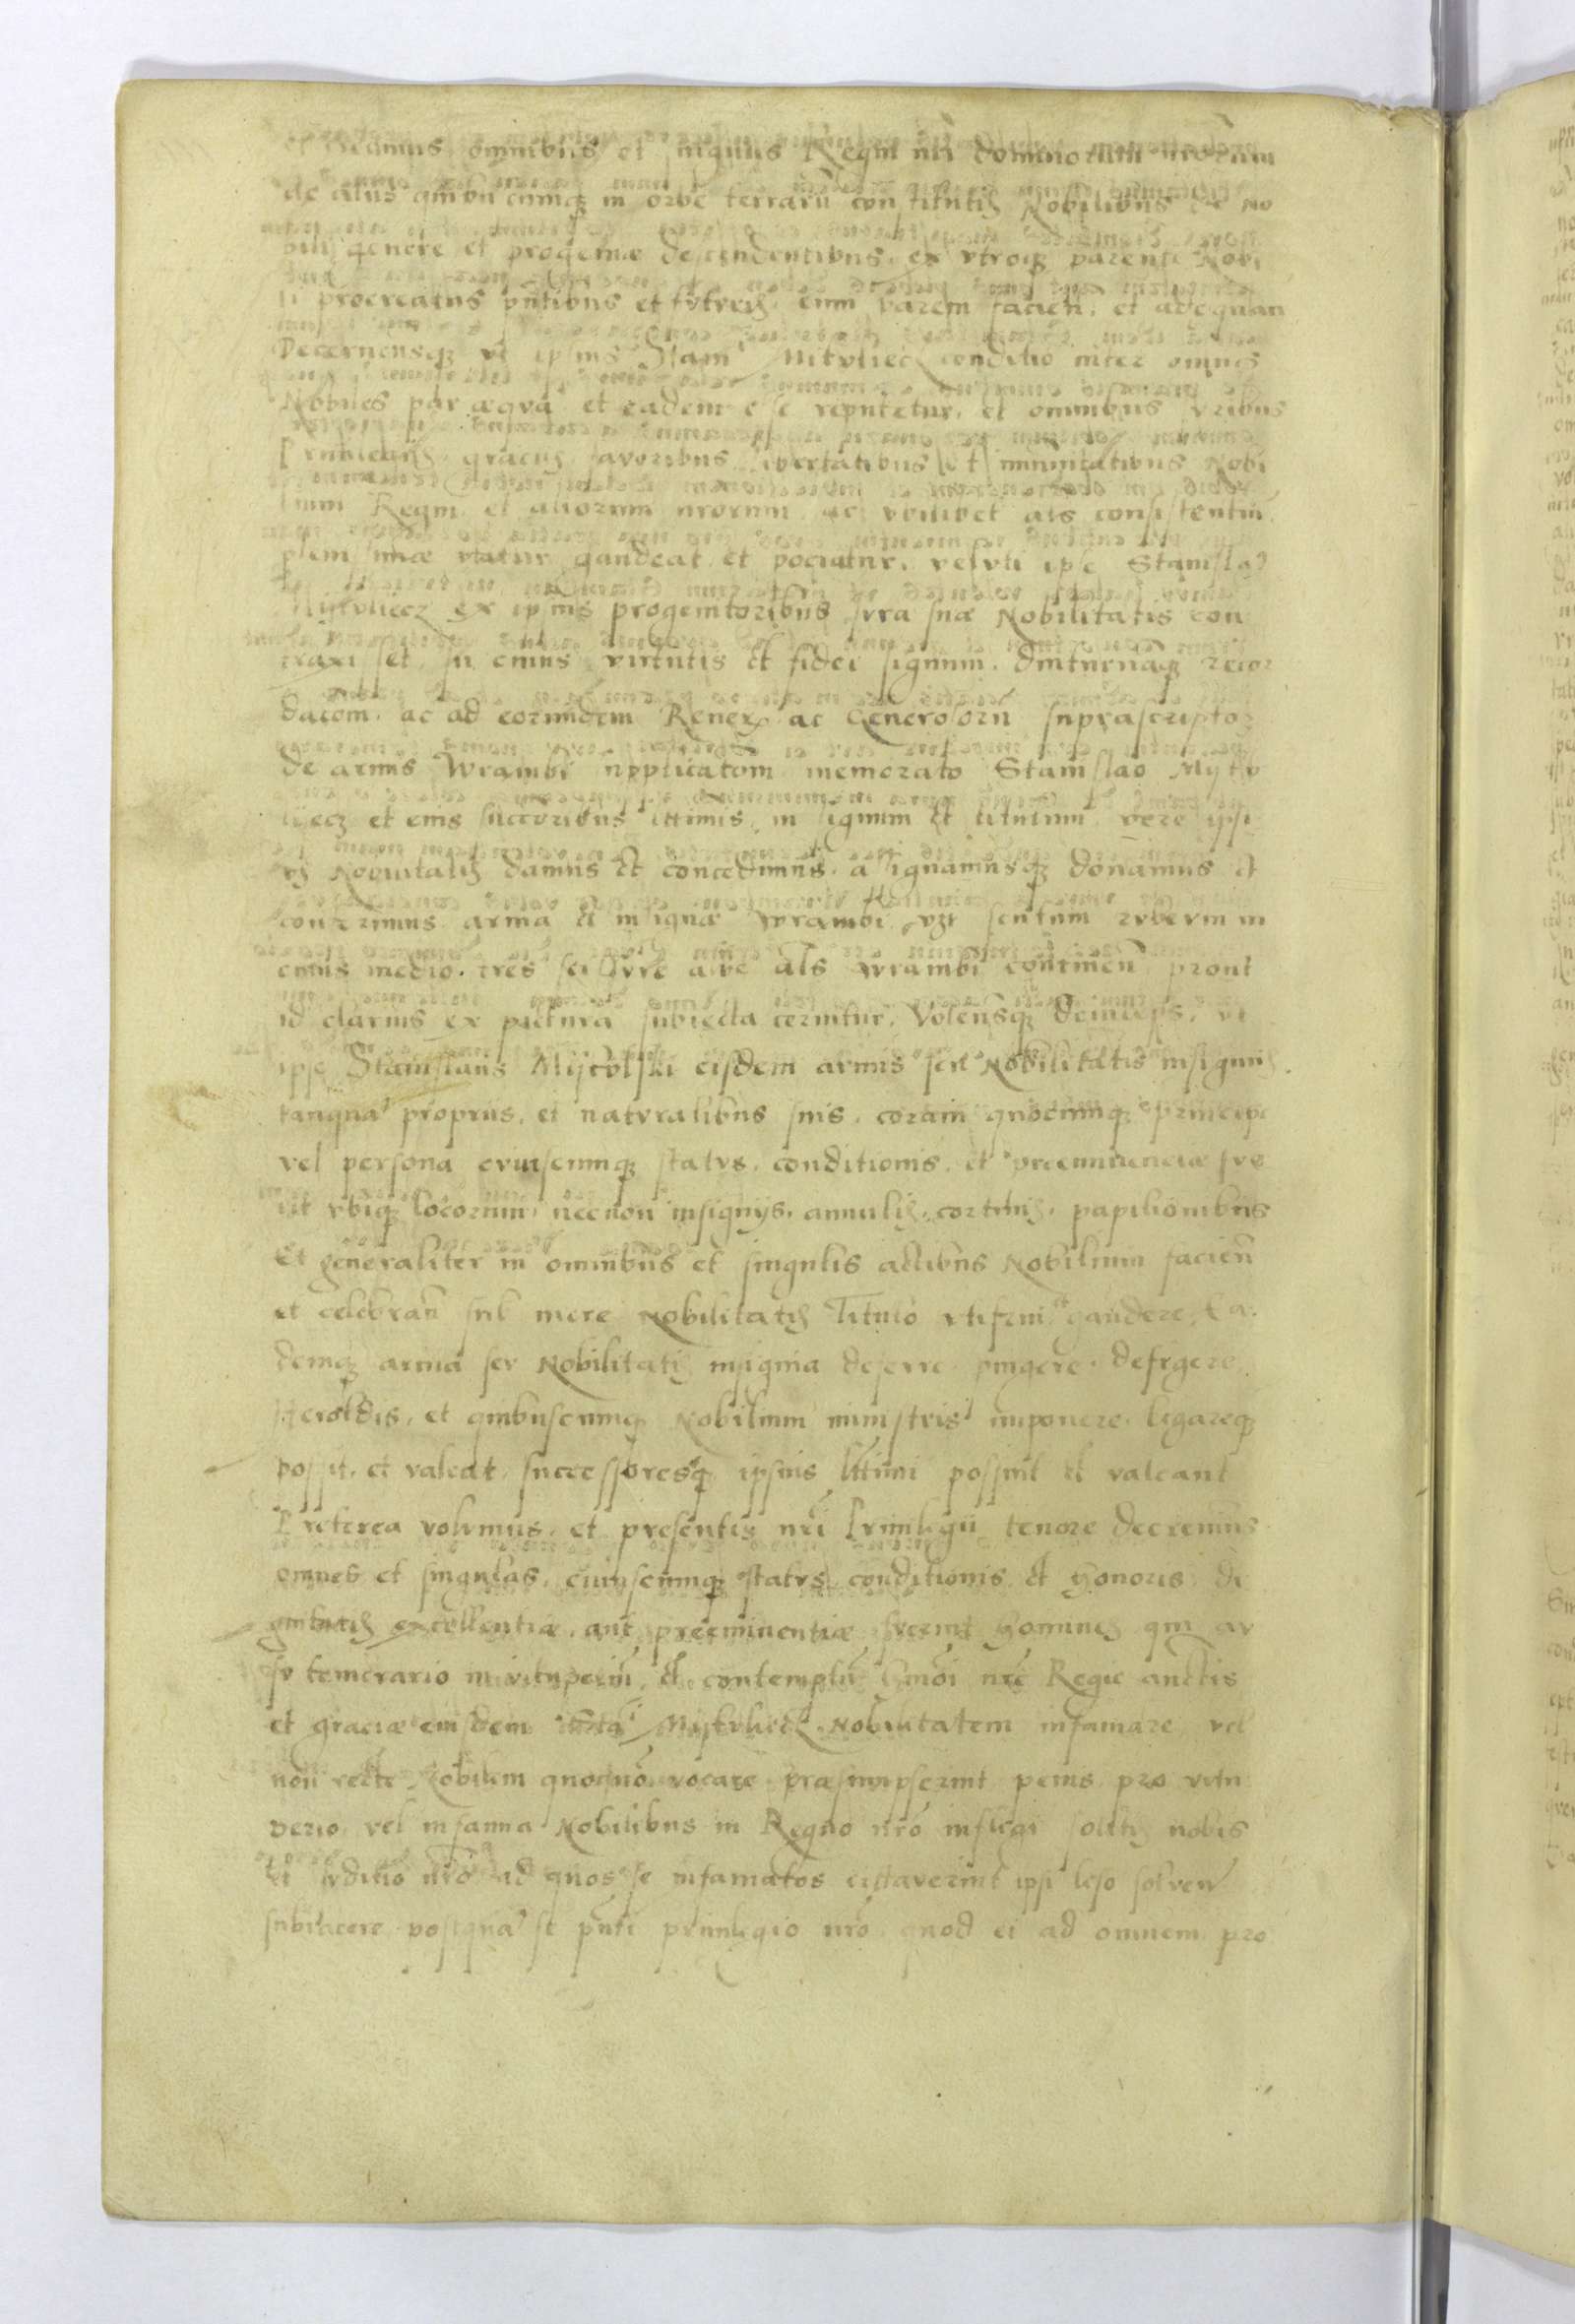 omnibus et singulis Regni nri dominorum nrorum
de alijs quibuscumq; in orbe terrarũ constitutis Nobilibus ex no
bili genere et progeniæ descendentibus, ex vtroq; parente Nobi
li procreatus pñtibus et futuris, eum parem facien, et adequan
Decernensq; vt ipsius Stani Mitvliecz conditio inter omnes
Nobiles par æqva et eadem esse reputetur, et omnibus vribus
Priuilegijs gracijs favoribus libertatibus et immunitatibus Nobi
lium Regni et aliorum nrorum ac vbilibet als consistentiũ
plenissimæ vtatur gaudeat et pociatur, velvti ipse Stanisla9
Mijtvliecz ex ipsius progenitoribus ivra suæ Nobilitatis con
traxisset, In cuius virtutis et fidei signum, diuturnaq; recor
dacom, ac ad eorundem Rener ac Generosorũ suprascriptoz
de armis Wrambi npplicatom memorato Stanislao Mijtv
liecz et eius successoribus lttimis, in signum et titulum vere ipsi
vs Nobilitatis damus et concedimus, assignamusq; donamus et
conferimus arma et insignæ Wrambi vzt scutum rvbevm in
cuius medio, tres scissvre albe als wrambi continen̄ prout
id clarius ex pictura subiecta cernitur, Volensq; deinceps, vt
ipse Stanislaus Mijtvlski eisdem armis seu Nobilitatis insignijs
tanqua propriis, et natvralibus suis, coram quocunq; principe
vel persona cvivscunq; statvs, conditionis, et preeminenciæ fve
rit vbiq; locorum, necnon insignijs, annulis, cortinis, papilionibus
Et generaliter in omnibus et singulis actibus Nobilium facien̄
et celebran̄ sub mere Nobilitatis Titulo vtifrui et gaudere, Ea
demq; arma sev Nobilitatis insignia deferre pingere, defigere
Heroldis, et quibuscunq; Nobilium ministris imponere, ligareq;
possit, et valeat, successoresq; ipsius lttimi possint et valeant
Preterea volumus, et presentis nri Priuilegii tenore decernimus
omnes et singulas, cuiuscunq; statvs conditionis et honoris di
gnitatis excellentiæ, aut preeminentiæ fverint homines qui av
sv temerario in vituperiũ, et contemptũ hmõi nrẽ Regie auctis
et graciæ eiusdem Stãi Mijtvliecz Nobilitatem infamare vel
non recte Nobilem quoquõ vocare præsumpserint penis pro vitu
perio vel infamia Nobilibus in Regno nrõ inflegi solitis nobis
Et ivditio nrõ ad quos se infamatos cittaverint ipsi leso solven̄
subiacere postqua se pñti priuilegio nrõ quod ei ad omnem pro